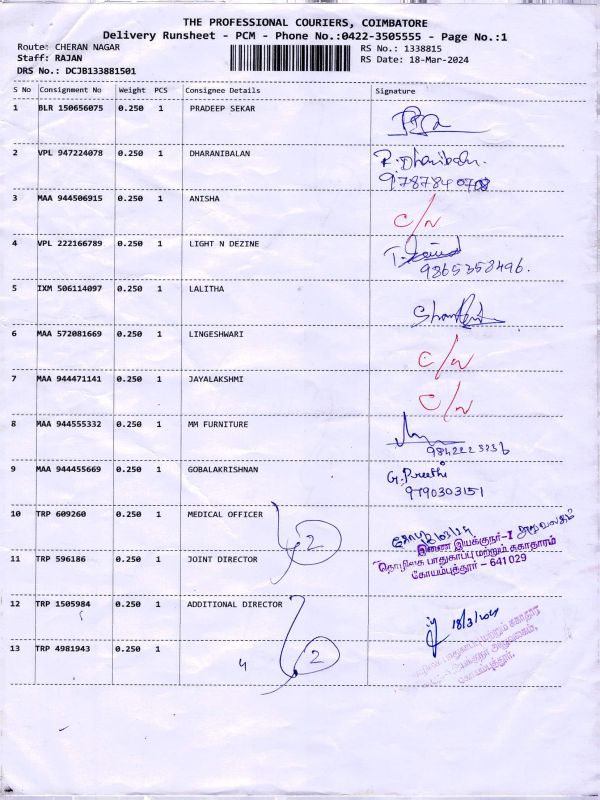 THE PROFESSIONAL COURIERS, COIMBATORE
Delivery Runsheet - PCM - Phone No.:0422-3505555 - Page No.:1
Route: CHERAN NAGAR RS No.: 1338815
Staff: RAJAN RS Date: 18-Mar-2024
DRS No.: DCJB133881501
S No Consignment No Weight PCS Consignee Details Signature
1 BLR 150656075 0.250 1 PRADEEP SEKAR
2 VPL 947224078 0.250 1 DHARANIBALAN R. Dharnibalan.
9787840708
3 MAA 944506915 0.250 1 ANISHA C/N
4 VPL 222166789 0.250 1 LIGHT N DEZINE
9865353496.
5 IXM 506114097 0.250 1 LALITHA
6 MAA 572081669 0.250 1 LINGESHWARI C/N
7 MAA 944471141 0.250 1 JAYALAKSHMI C/N
8 MAA 944555332 0.250 1 MM FURNITURE
9842223236
9 MAA 944455669 0.250 1 GOBALAKRISHNAN G. Preethi
9790303151
10 TRP 609260 0.250 1 MEDICAL OFFICER 2
இணை இயக்குநர்-I அலுவலகம்
11 TRP 596186 0.250 1 JOINT DIRECTOR தொழிலக பாதுகாப்பு மற்றும் சுகாதாரம்
கோயம்புத்தூர் - 641 029
12 TRP 1505984 0.250 1 ADDITIONAL DIRECTOR 18/3/24
13 TRP 4981943 0.250 1 4 2
கோயம்புத்தூர்.